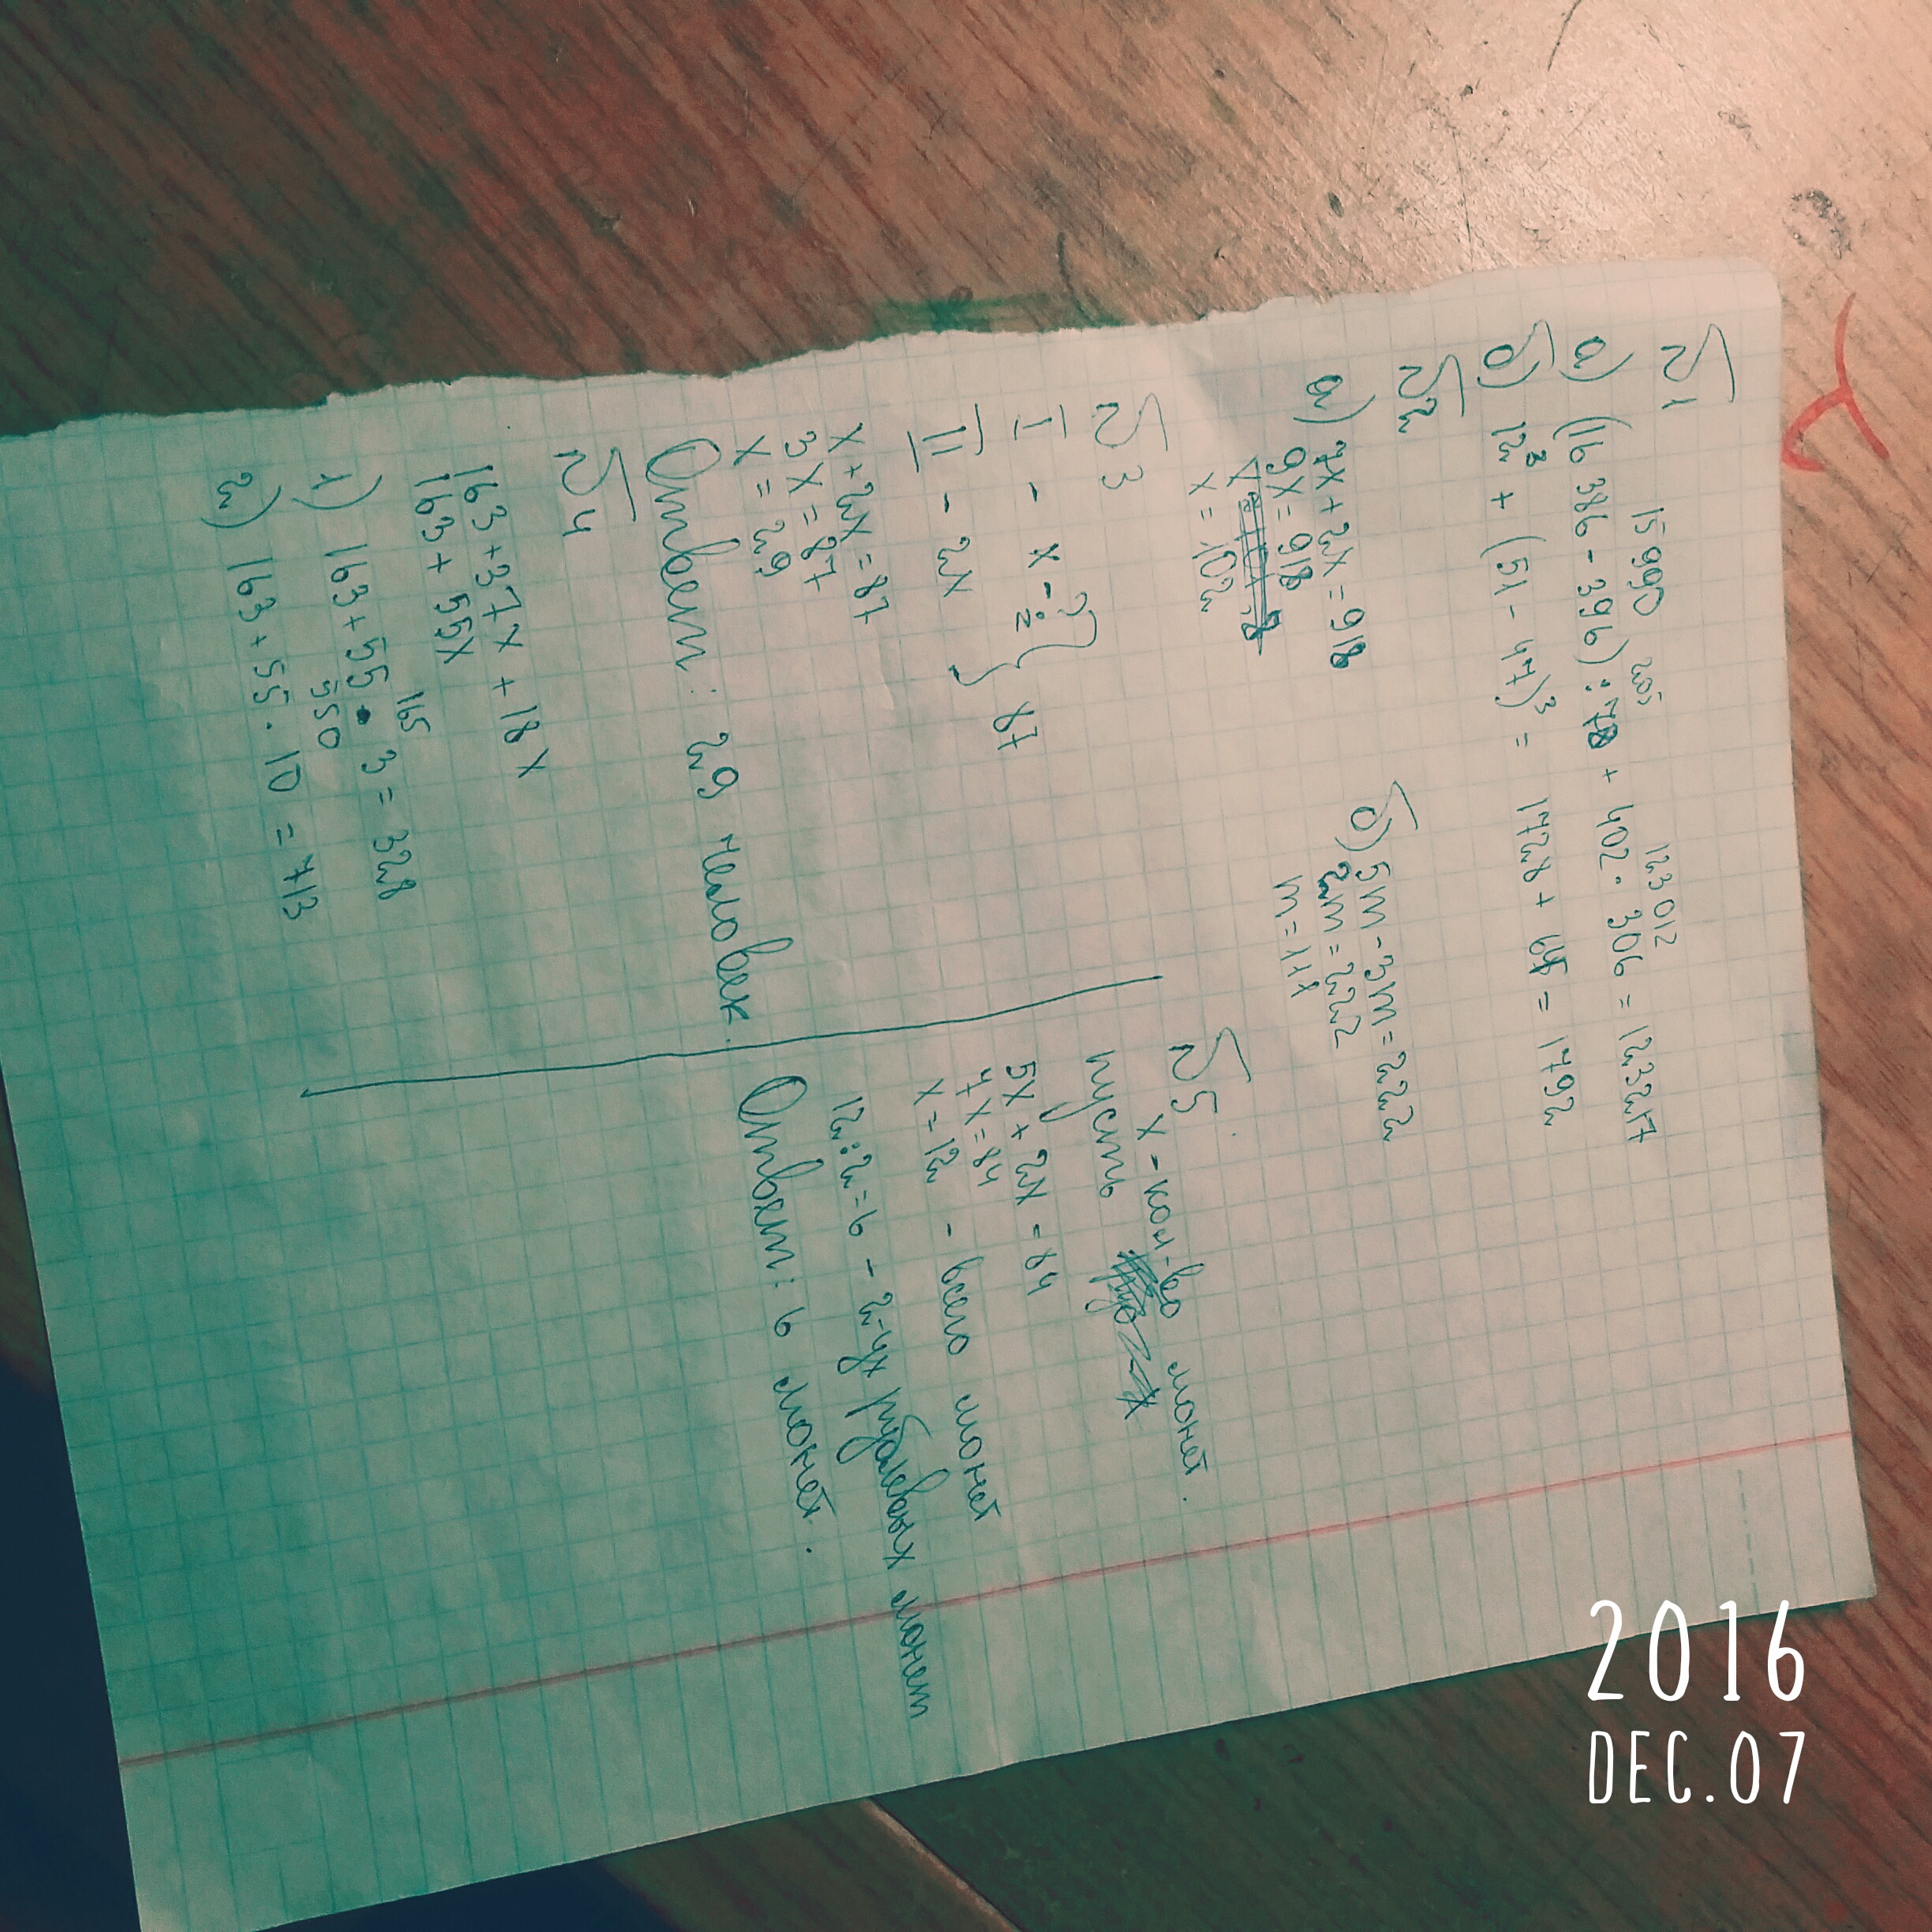 √1
15990 205 123012
а) (16386 - 396) : 78 + 402 · 306 = 123217
б) 12³ + (51 - 47)³ = 1728 + 64 = 1792
√2
а) 7x + 2x = 918
9x = 918
x = 102
б) 5m - 3m = 222
2m = 222
m = 111
√3
I - x - ?
II - 2x } 87
x + 2x = 87
3x = 87
x = 29
Ответ: 29 человек.
√4
163 + 37x + 18x
163 + 55x
165
1) 163 + 55 · 3 = 328
550
2) 163 + 55 · 10 = 713
√5
x - кол-во монет.
пусть
5x + 2x = 84
7x = 84
x = 12 - всего монет
12 : 2 = 6 - 2-ух рублевых монет
Ответ: 6 монет.
2016
DEC.07